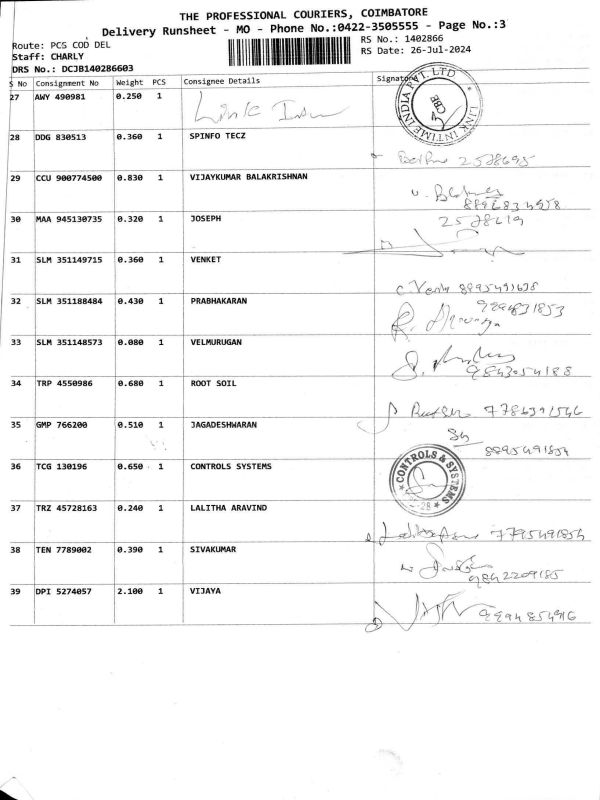 THE PROFESSIONAL COURIERS, COIMBATORE
Delivery Runsheet - MO - Phone No.:0422-3505555 - Page No.:3
Route: PCS COD DEL
RS No.: 1402866
Staff: CHARLY
RS Date: 26-Jul-2024
DRS No.: DCJB140286603
S No Consignment No Weight PCS Consignee Details Signature
27 AWY 490981 0.250 1 Link
LINK INTIME INDIA PVT. LTD
CBE
28 DDG 830513 0.360 1 SPINFO TECZ
2578695
29 CCU 900774500 0.830 1 VIJAYKUMAR BALAKRISHNAN
30 MAA 945130735 0.320 1 JOSEPH
31 SLM 351149715 0.360 1 VENKET
32 SLM 351188484 0.430 1 PRABHAKARAN
9894831853
33 SLM 351148573 0.080 1 VELMURUGAN
9843054188
34 TRP 4550986 0.680 1 ROOT SOIL
35 GMP 766200 0.510 1 JAGADESHWARAN
36 TCG 130196 0.650 1 CONTROLS SYSTEMS
CONTROLS & SYSTEMS
37 TRZ 45728163 0.240 1 LALITHA ARAVIND
38 TEN 7789002 0.390 1 SIVAKUMAR
9842209185
39 DPI 5274057 2.100 1 VIJAYA